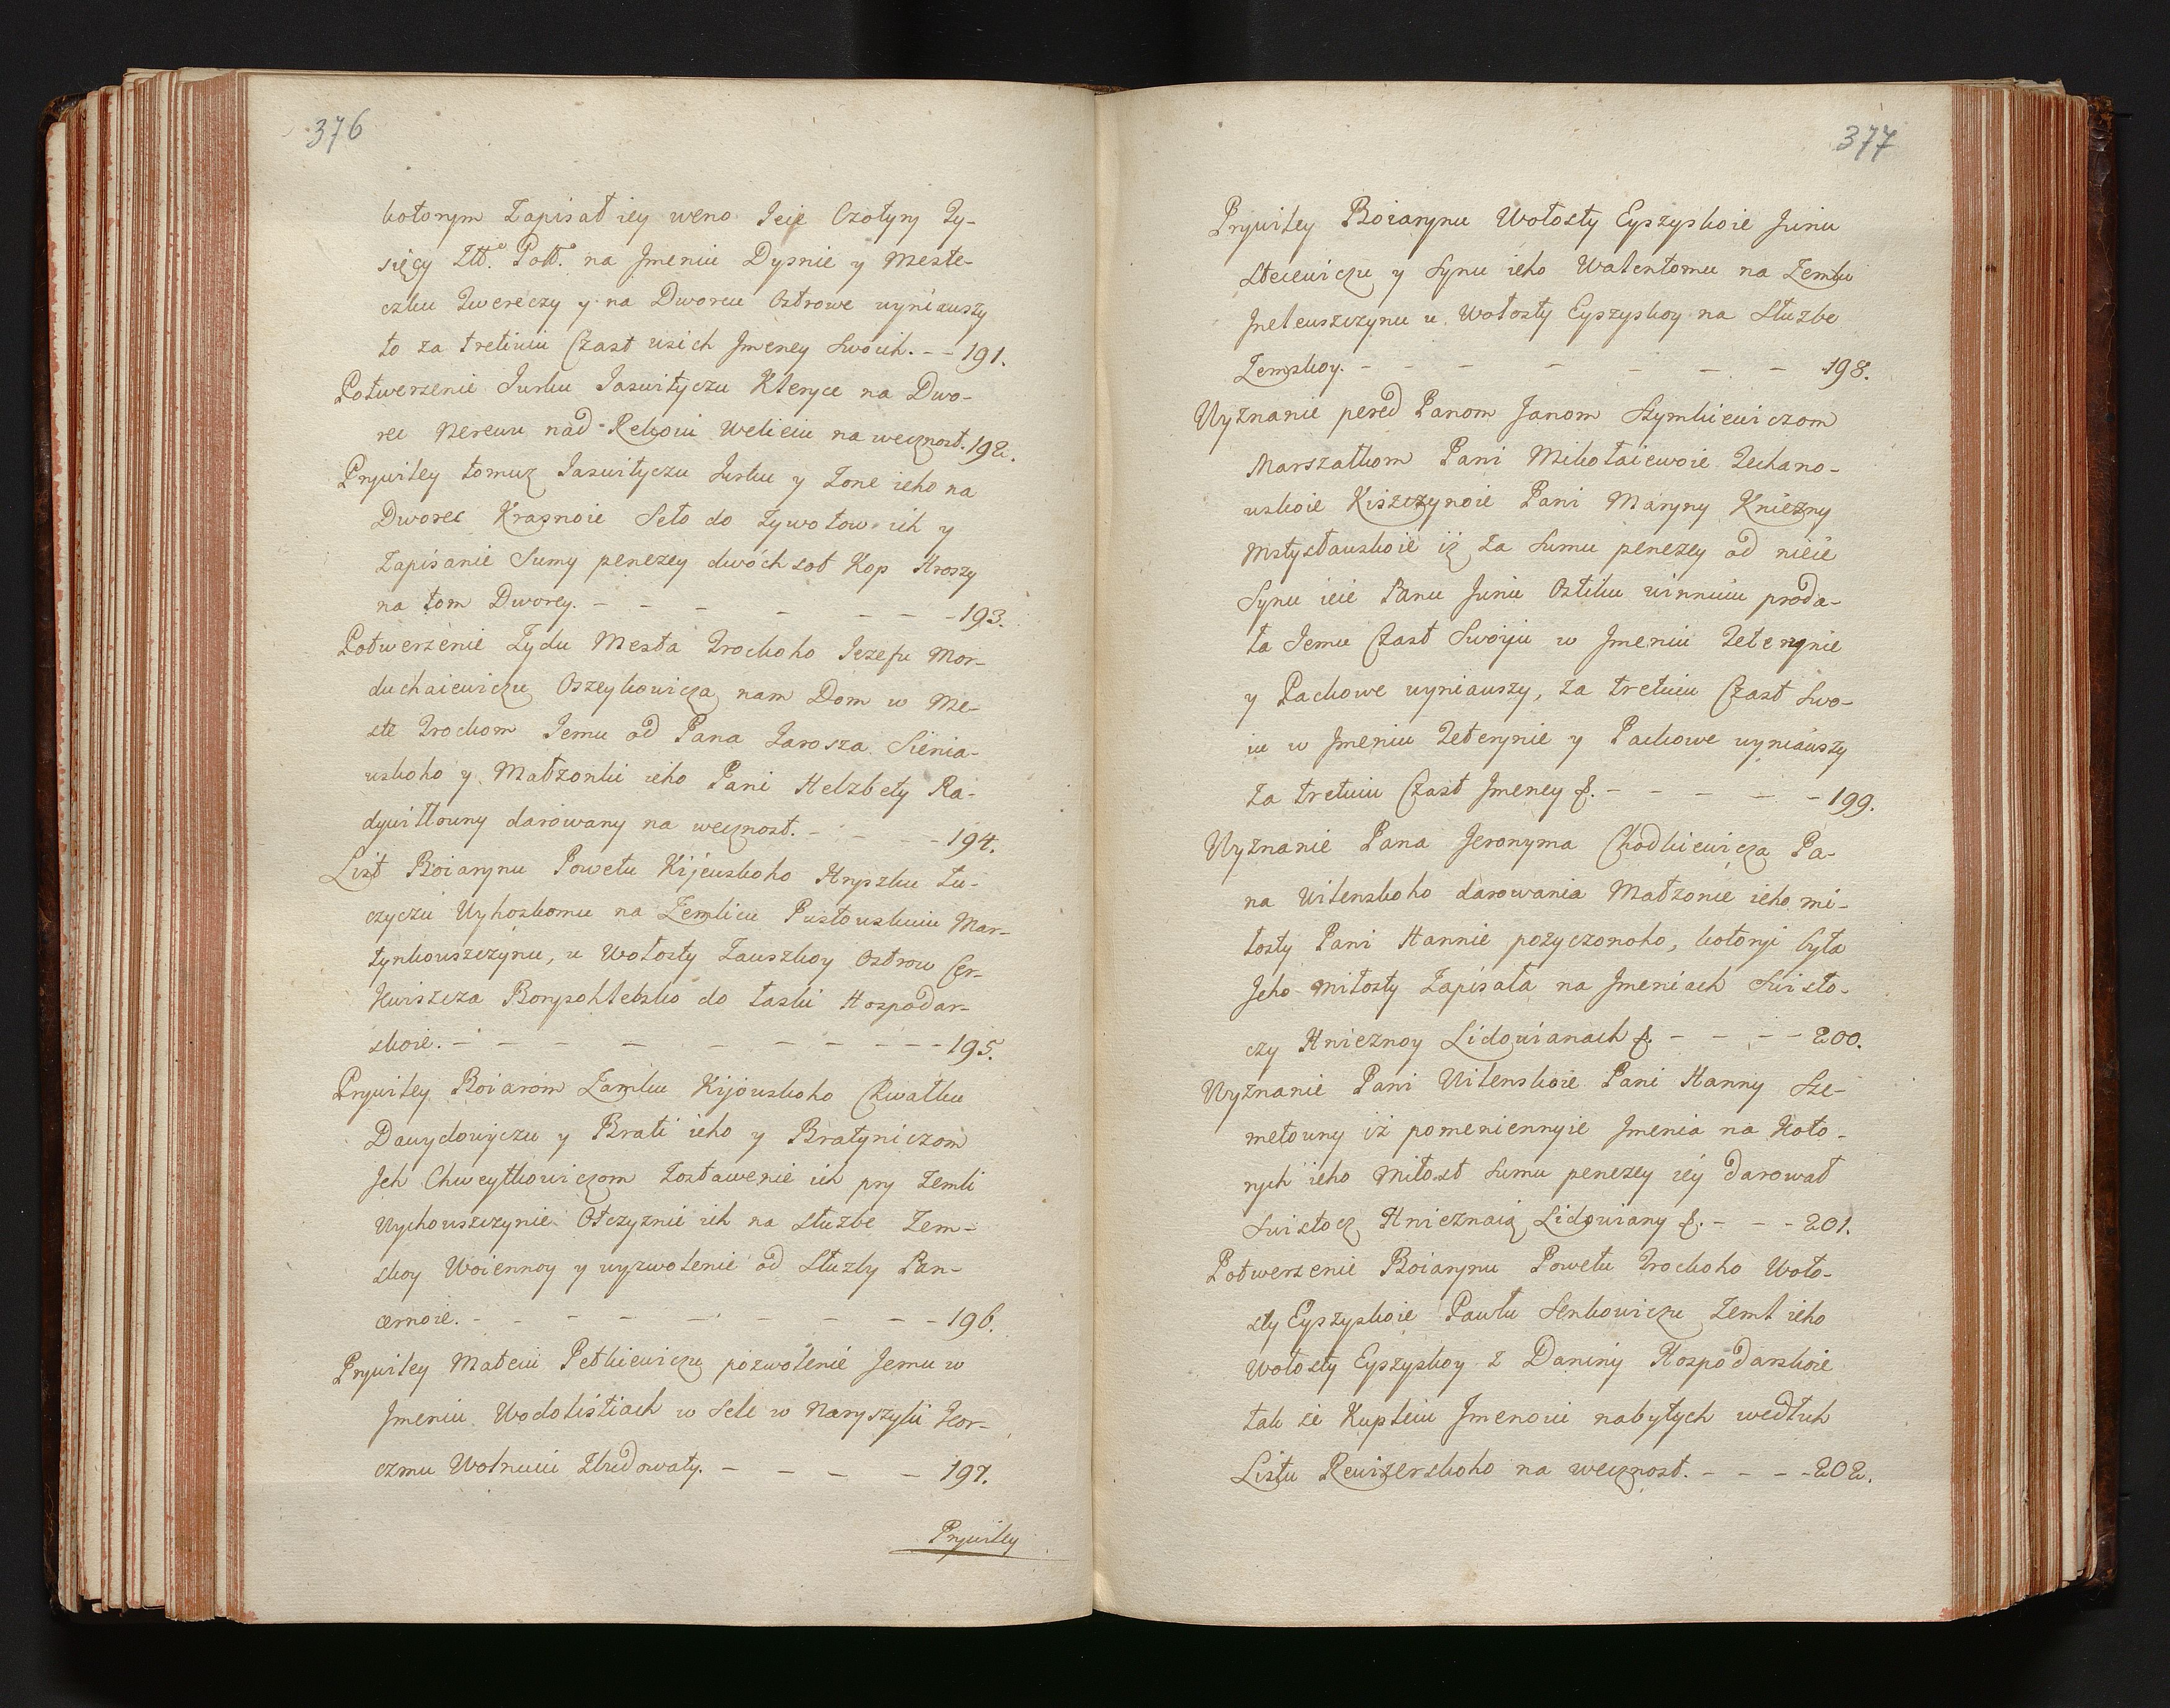 376
kotorym Zapisał iey weno Jeie Czotyry Ty-
sięcy Złł. Poll. na Jmeniu Dysnie y Meste-
czku Twereczy y na Dworcu Ostrowe wyniauszy
to za tretiuiu Czast usich Jmeney Swoich. - - 191.
Potwerzenie Jurku Jaswityczu Kteryce na Dwo-
rec Nerewu nad Rekoiu Welieiu na wecznost. 192.
Prywiley tomuz Jaswityczu Jurku y Zone ieho na
Dworec Krasnoie Seło do Zywotow ich y
Zapisanie Sumy penezey dwóch sot Kop Hroszy
na tom Dworcy. - - - - - - - 193.
Potwerżenie Żydu Mesta Trockoho Jezefu Mor-
duchaiewiczu Oszeykowicza nam Dom w Me-
ste Trockom Jemu od Pana Jarosza Sienia-
uskoho y Małzonki ieho Pani Helzbety Ra-
dywiłłouny darowany na wecznost. - - - - 194.
List Boiarynu Powetu Kijeuskoho Hryszku Łu-
czyczu Wyhoskomu na Zemlicu Pustouskuiu Mar-
tynkouszczynu, u Wołosty Zauszkoy Ostrow Cer-
kwiszcza Borysohlebsko do łaski Hospodar-
skoie. - - - - - - - - - - 195.
Prywiley Boiarom Zamku Kijouskoho Chwalku
Dawydowiczu y Brati ieho y Bratyniczom
Jeh Chweytkowiczom Zostawenie ich pry Zemli
Wychouszczynie Otczyznie ich na Służbe Zem-
skoy Woiennoy y wyzwolenie od Służby Pan-
cernoie. - - - - - - - - - 196.
Prywiley Mateiu Petkiewiczu pozwolenie Jemu w
Jmeniu Wodolistiach w Sele w Naryszyli Kor-
czmu Wolnuiu Zbudowaty. - - - - 197.
Prywiley
377
Prywiley Boiarynu Wołosty Eyszyskoie Juriu
Stecewiczu y Synu ieho Walentomu na Zemlu
Jneleuszczynu u Wołosty Eyszyskoy na Służbe
Zemskoy. - - - - - - - 198.
Wyznanie pered Panom Janom Szymkiewiczom
Marszałkom Pani Mikołaiewoie Techano-
uskoie Kiszczynoie Pani Maryny Kniezny
Mstysłauskoie iż za Sumu penezey od nieie
Synu ieie Panu Juriu Ostiku winnuiu proda-
ła Jemu Czast Swoiju w Jmeniu Teterynie
y Packowe wyniauszy, za tretuiu Czast Swo-
iu w Jmeniu Teterynie y Packowe wyniauszy
Za tretuiu Czast Jmeney &. - - - - - 199.
Wyznanie Pana Jeronyma Chodkiewicza Pa-
na Wilenskoho darowania Małzonie ieho mi-
łosty Pani Hannie pożyczonoho, kotoryi była
Jeho miłosty Zapisała na Jmeniach Swisło-
czy Hnieznoy Lidowianach &. - - - - 200.
Wyznanie Pani Wilenskoie Pani Hanny Sze-
metouny iż pomeniennyie Jmenia na Koto-
rych ieho Miłost Sumu penezey iey darował
Swisłocz Hnieznaią Lidowiany &. - - - 201.
Potwerzenie Boiarynu Powetu Trockoho Woło-
sty Eyszyskoie Pawłu Senkowiczu Zeml ieho
Wołosty Eyszyskoy z Daniny Hospodarskoie
tak że Kupleiu Jmenoui nabytych wedłuh
Listu Rewizerskoho na wecznost. - - - - 202.